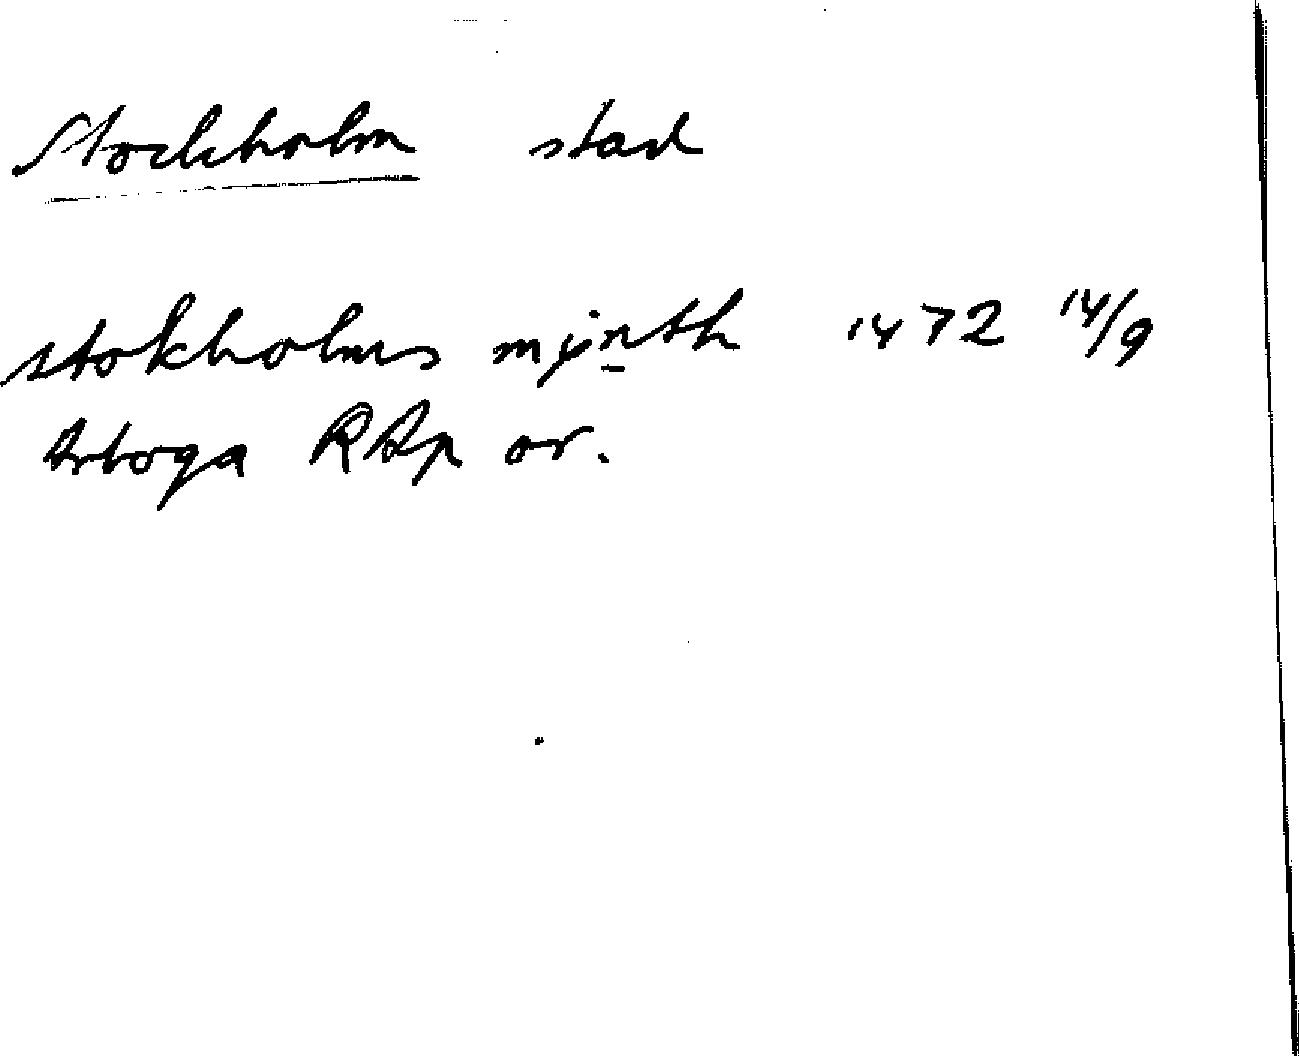 Stockholm stad
stokholms mÿnth 1472 14/9
Arboga RAp or.